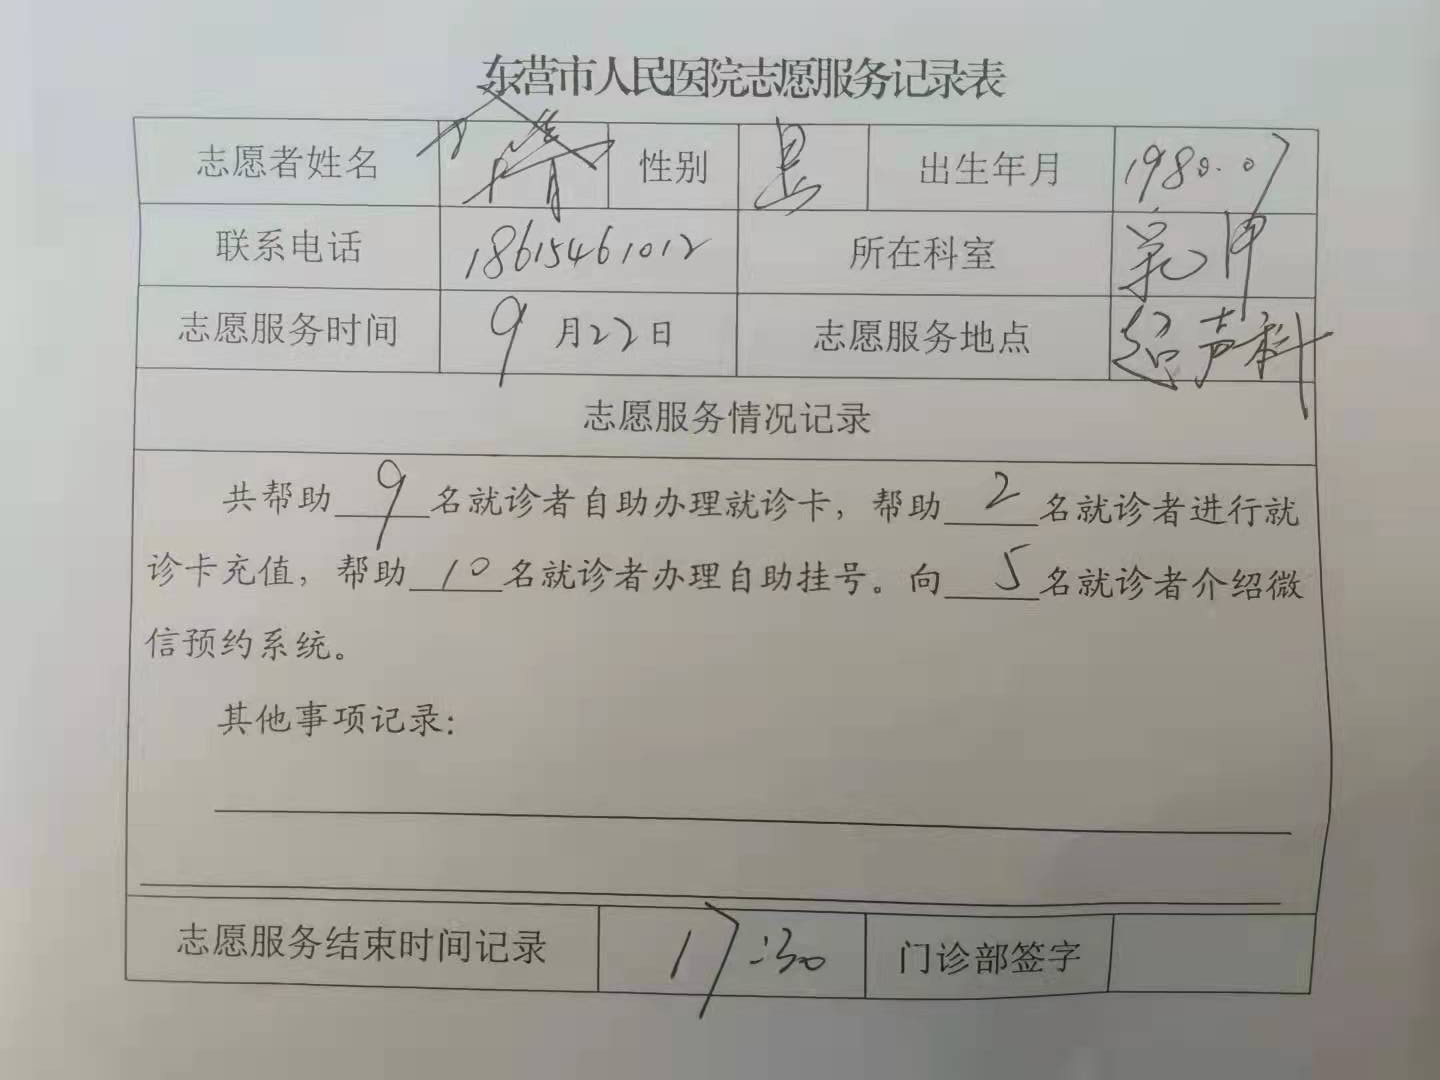 东营市人民医院志愿服务记录表
志愿者姓名 性别 男 出生年月 1980.07
联系电话 18615461012 所在科室
志愿服务时间 9月22日 志愿服务地点 超声科
志愿服务情况记录
共帮助9名就诊者自助办理就诊卡，帮助2名就诊者进行就
诊卡充值，帮助10名就诊者办理自助挂号。向5名就诊者介绍微
信预约系统。
其他事项记录：
志愿服务结束时间记录 17:30 门诊部签字